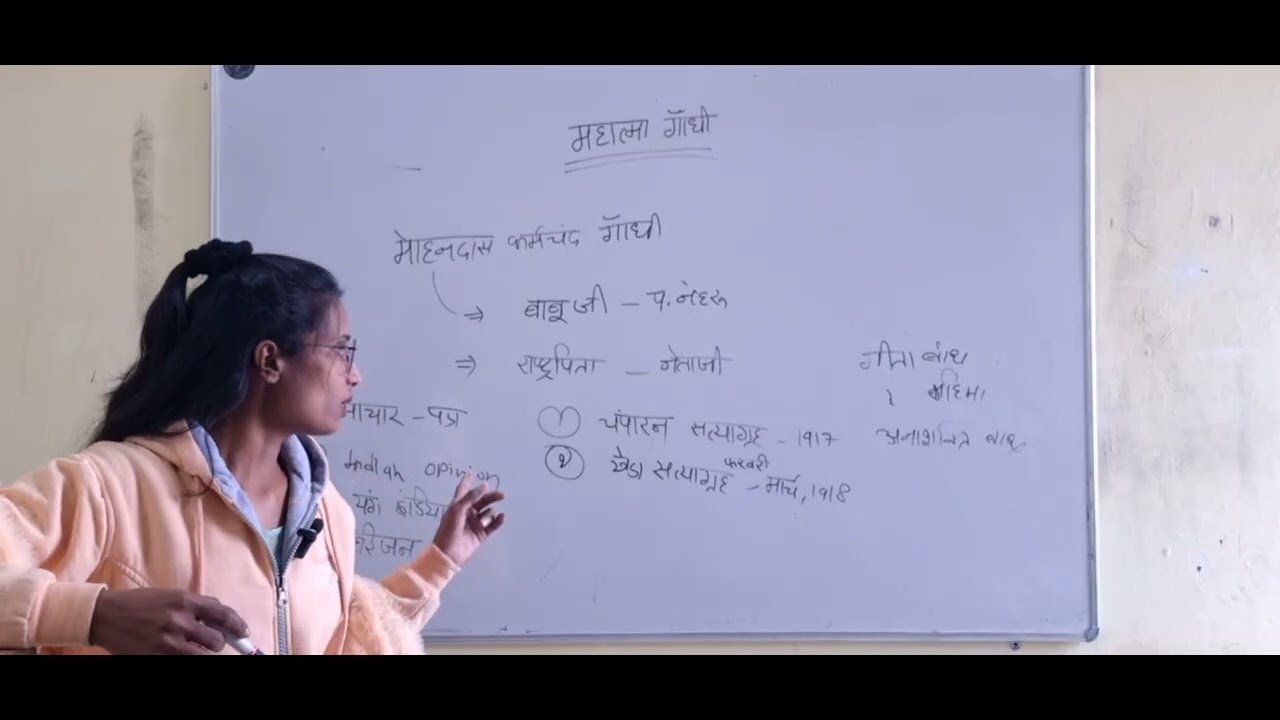 महात्मा गाँधी
मोहनदास कर्मचंद गाँधी
⇒ बाबू जी – प. नेहरू
⇒ राष्ट्रपिता – नेताजी
गीता बोध
महिमा
ाचार – पत्र
Indian opinion
यंग इंडिया
रिजन
① चंपारन सत्याग्रह – 1917
② खेडा सत्याग्रह – मार्च, 1918
फरवरी